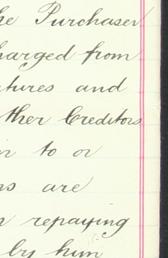 he Purchaser
charged from
tures and
ther Creditors
in to or
ns are
n repaying
by him